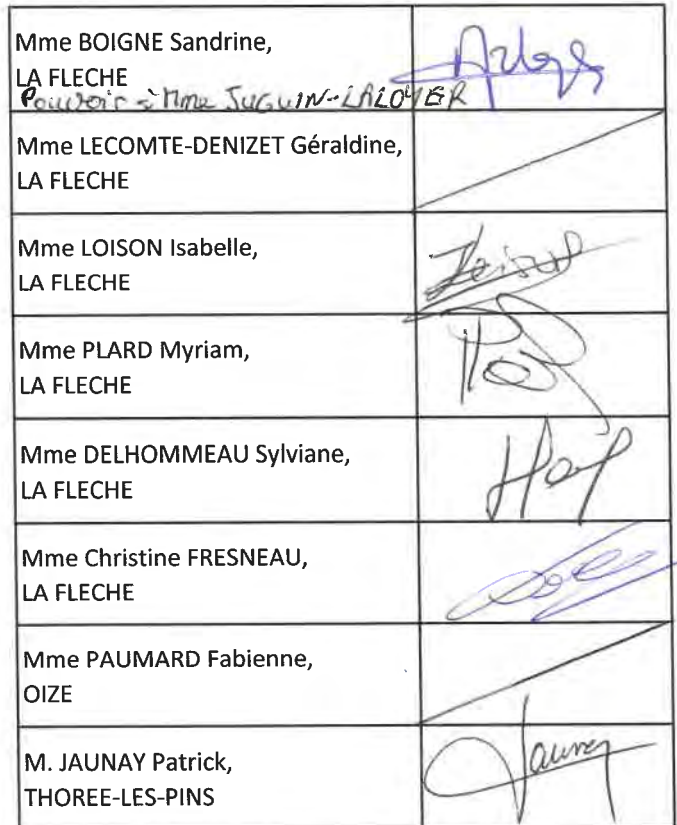 Mme BOIGNE Sandrine,
LA FLECHE
Pouvoir à Mme JUGUIN-LALOYER
Mme LECOMTE-DENIZET Géraldine,
LA FLECHE
Mme LOISON Isabelle,
LA FLECHE
Loison
Mme PLARD Myriam,
LA FLECHE
Mme DELHOMMEAU Sylviane,
LA FLECHE
Mme Christine FRESNEAU,
LA FLECHE
Mme PAUMARD Fabienne,
OIZE
M. JAUNAY Patrick,
THOREE-LES-PINS
Jaunay